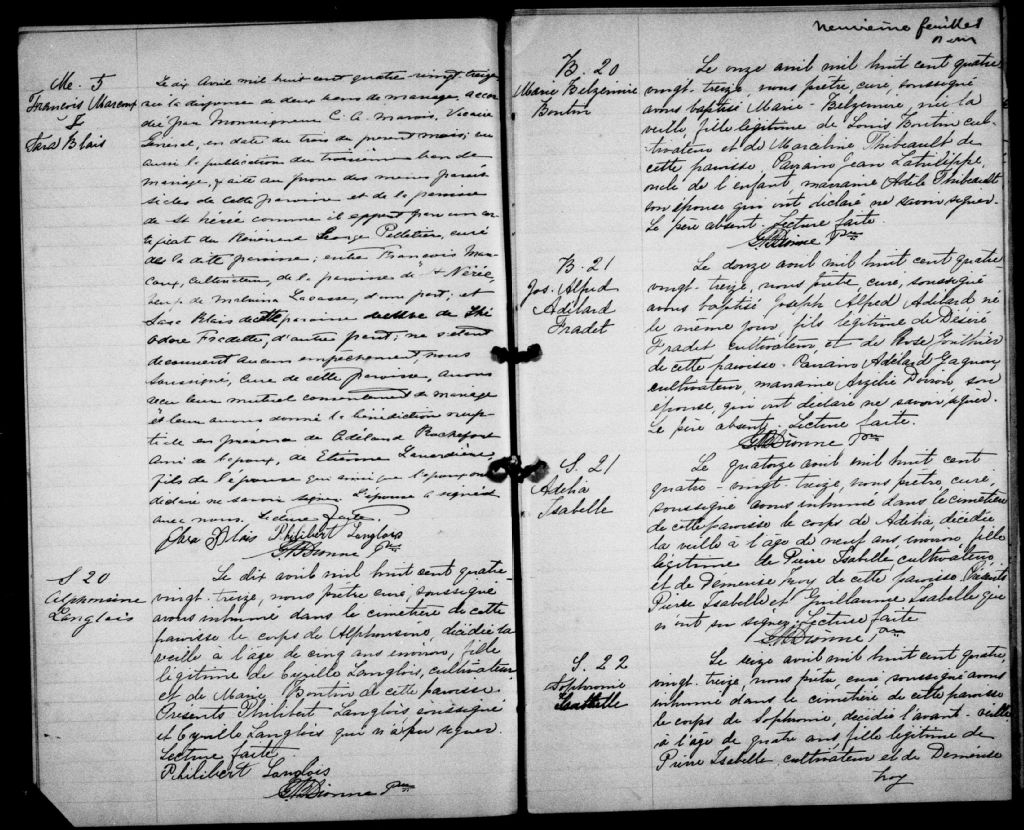 Me. 5
François Marcoux
&
Sara Blais
Le dix Avril mil huit cent quatre vingt-treize
vu la dispense de deux bans de mariage, accor
dée par Monseigneur C. A. Marois, Vicaire
General, en date du trois du present mois; vu
aussi la publication du troisième ban de
mariage, faite au prone des messes parois
siales de cette paroisse et de la paroisse
de St Nérée comme il appert par un cer
tificat du Révérend George Pelletier, curé
de la ditte paroisse; entre François Mar
coux, cultivateur, de la paroisse de St Nérée,
veuf de Malvina Lacasse, d'une part; et
Sara Blais de cette paroisse veuve de Thé
odore Fradette, d'autre part; ne s'étant
decouvert aucun empechement nous
soussigné, Curé de cette paroisse, avons
reçu leur mutuel consentement de mariage
et leur avons donné la bénédiction nup
tiale en présence de Adélard Rochefort
Ami de l'époux, de Etienne
fils de l'épouse qui ainsi que l'époux ont
déclaré ne savoir signer. L'épouse a signé
avec nous. Lecture faite.
Sara Blais Philibert Langlois
Dionne Ptre
S 20
Alphonsine
Langlois
Le dix avril mil huit cent quatre-
vingt-treize, nous prêtre curé, soussigné
avons inhumé dans le cimetière de cette
paroisse le corps de Alphonsine, décédée la
veille à l'âge de cinq ans environ, fille
légitime de Cyrille Langlois, cultivateur
et de Marie Boutin de cette paroisse.
Présents Philibert Langlois soussigné
et Cyrille Langlois qui n'a pu signer.
Lecture faite
Philibert Langlois
Dionne Ptre
neuvième feuillet
B. 20
Marie Belzemire
Boutin
Le onze avril mil huit cent quatre
vingt-treize, nous prêtre, curé, soussigné
avons baptisé Marie-Belzemire, née la
veille, fille légitime de Louis Boutin cul-
tivateur et de Marceline Thibeault de
cette paroisse. Parrain Jean Latulippe,
oncle de l'enfant, marraine Adèle Thibeault
son épouse qui ont déclaré ne savoir signer.
Le père absent. Lecture faite.
Dionne Ptre
B. 21
Jos. Alfred
Adélard
Fradet
Le douze avril mil huit cent quatre-
vingt-treize, nous prêtre, curé, soussigné
avons baptisé Joseph Alfred Adélard né
le même jour, fils légitime de Désiré
Fradet cultivateur et de Rose Gonthier
de cette paroisse. Parrain Adélard Gagnon,
cultivateur, marraine Arzélie Doiron son
épouse, qui ont déclaré ne savoir signer.
Le père absent. Lecture faite.
Dionne Ptre
S. 21
Adélia
Isabelle
Le quatorze avril mil huit cent
quatre-vingt-treize, nous prêtre, curé,
soussigné avons inhumé dans le cimetière
de cette paroisse le corps de Adélia, décédée
la veille à l'âge de neuf ans environ, fille
légitime de Pierre Isabelle, cultivateur,
et de Demeuse Roy de cette paroisse. Présents
Pierre Isabelle et Guillaume Isabelle qui
n'ont su signer. Lecture faite
Dionne Ptre
S. 22
Sophronie
Isabelle
Le seize avril mil huit cent quatre
vingt-treize, nous prêtre curé soussigné avons
inhumé dans le cimetière de cette paroisse
le corps de Sophronie, décédée l'avant-veille
à l'âge de quatre ans fille légitime de
Pierre Isabelle cultivateur et de Demeuse
Roy